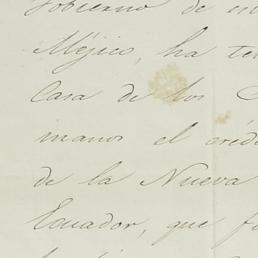 Gobierno de
Méjico, ha
Casa de los
manos el créd
de la Nueva
Ecuador, que